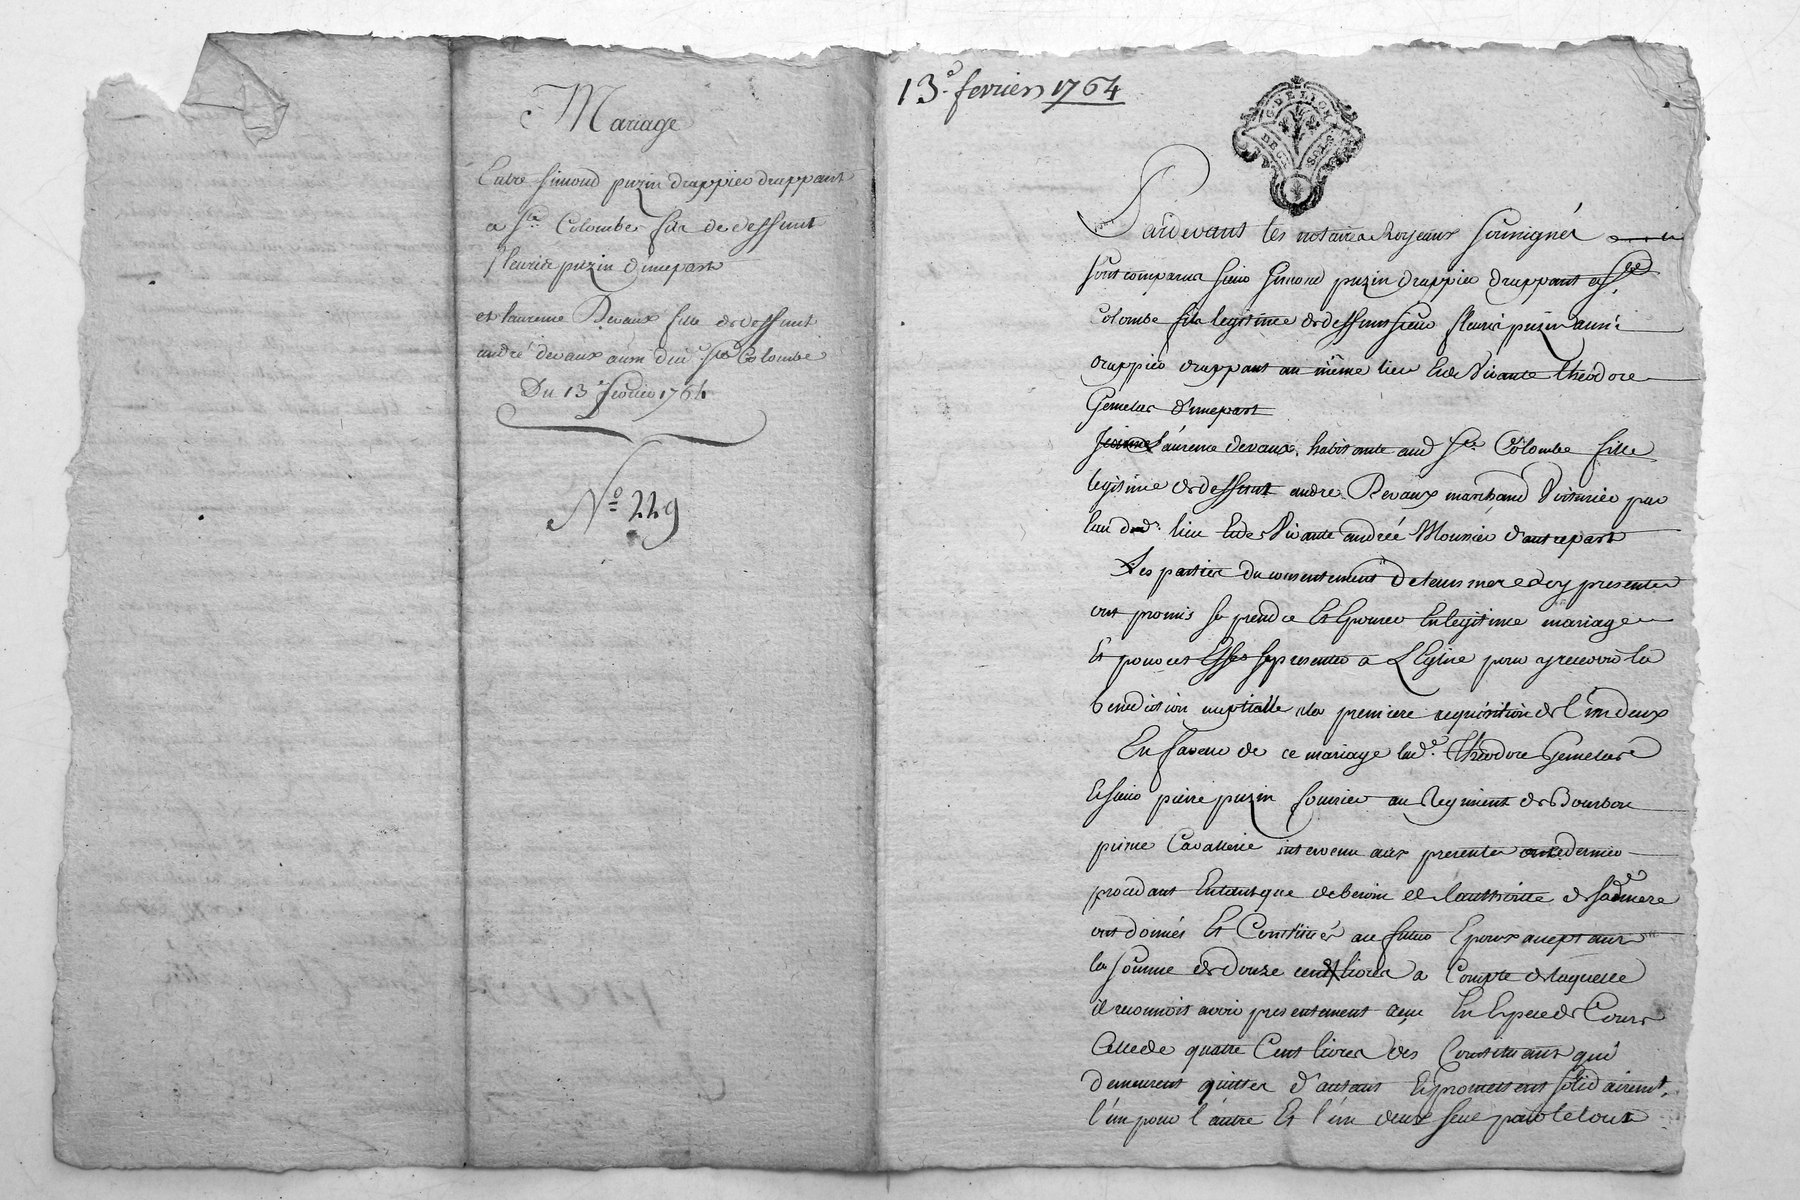 Mariage
Entre Simond puzin drappier drappant
a Ste Colombe fils de deffunt
fleurie puzin d'une part
et laurence Devaux fille de deffunt
andré devaux aussi dud. Ste Colombe
Du 13e fevrier 1764
No. 229
13e. fevrier 1764
G. DE LION
DEUX SOLS
Pardevant les notaires Royaux soussignés
sont comparus sieur Simond puzin drappier drappant a Ste
Colombe fils legitime de deffunt sieur fleurie puzin aussi
drappier drappant au même lieu et de vivante théodore
Gemelas d'une part
Laurence devaux, habitante aud. Ste Colombe fille
legitime de deffunt andré Devaux marchand voiturier par
dud. lieu et de vivante andreé Mounier d'autre part
Les parties du consentement de leurs meres icy presentes
ont promis se prendre et Epouser en legitime mariage
Et pour ces Effets se presenter a L'Eglise pour y recevoir la
benediction nuptialle a la premiere requisition de l'un deux
En faveur de ce mariage lad. théodore Gemelas
et sieur pierre puzin fourrier au Regiment de Bourbon
Cavallerie intervenu aux presentes ce dernier
procedant En tant que de besoin de l'authorité de sad. mere
ont donnés Et Constitués au futur Epoux acceptant
la somme de douze cent livres a Compte de laquelle
il reconnoit avoir presentement reçu En Espece de Cours
Celle de quatre Cent livres des Constituants qui
demeurent quittes d'autant Et promettent solidairement,
l'un pour l'autre Et l'un deux seul pour le tout